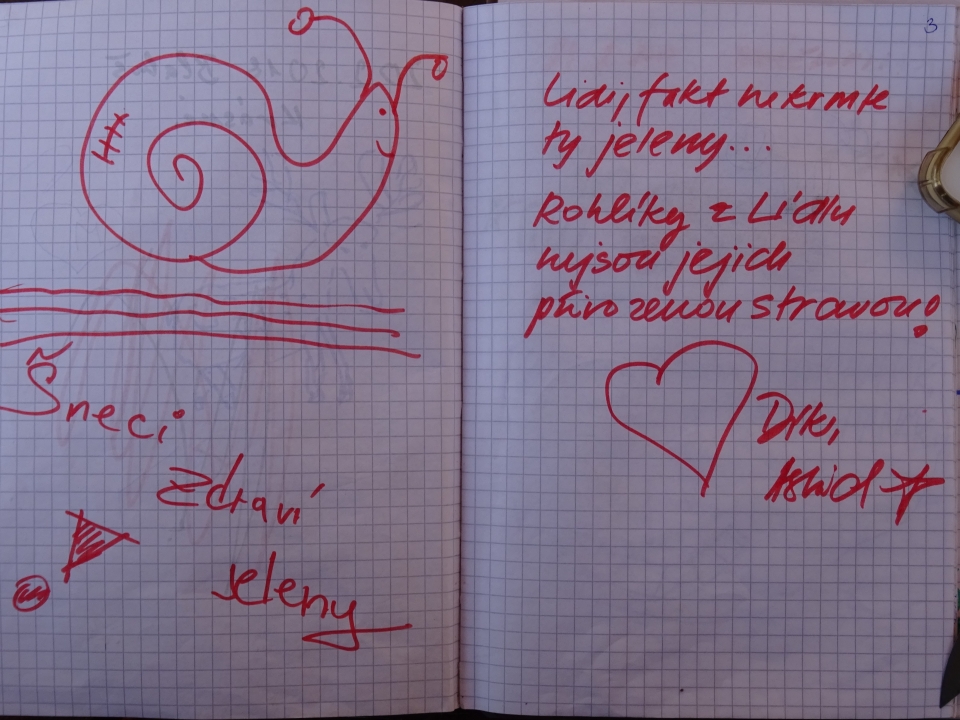 Šneci
Zdraví
jeleny
3
Lidi, fakt nekrmte
ty jeleny...
Rohlíky z Lidlu
nejsou jejich
přirozenou stravou!
Dík,